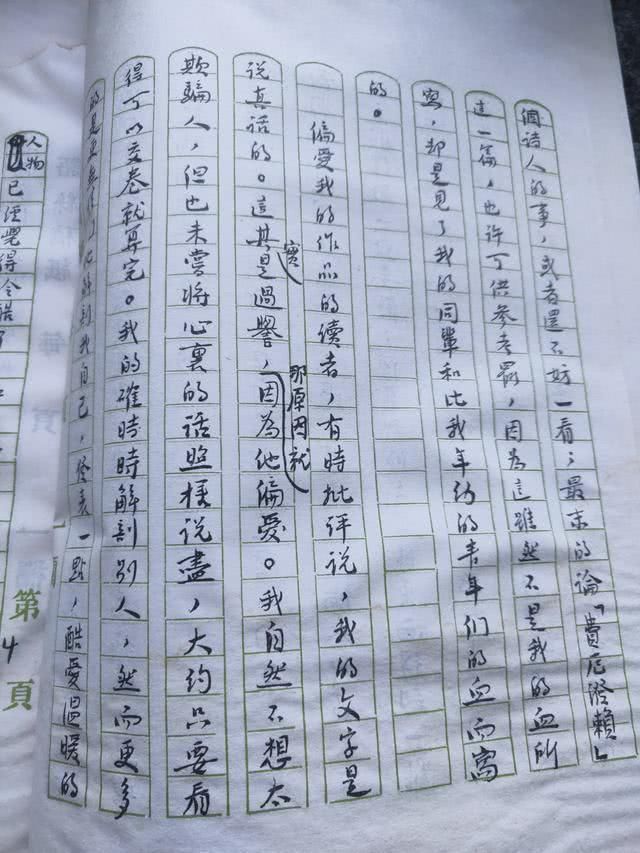 個詩人的事，或者還不妨一看；最末的論「費厄潑賴」
這一篇，也許可供參考罷，因為這雖然不是我的血所
寫，却是見了我的同輩和比我年幼的青年們的血而寫
的。
偏愛我的作品的讀者，有時批評說，我的文字是
說真話的。這其實是過譽，那原因就因為他偏愛。我自然不想太
欺騙人，但也未嘗將心裏的話照樣說盡，大約只要看
得可以交卷就算完。我的確時時解剖別人，然而更多
的是更無情面地解剖我自己，發表一點，酷愛溫暖的
第4頁
人物已經覺得冷酷了